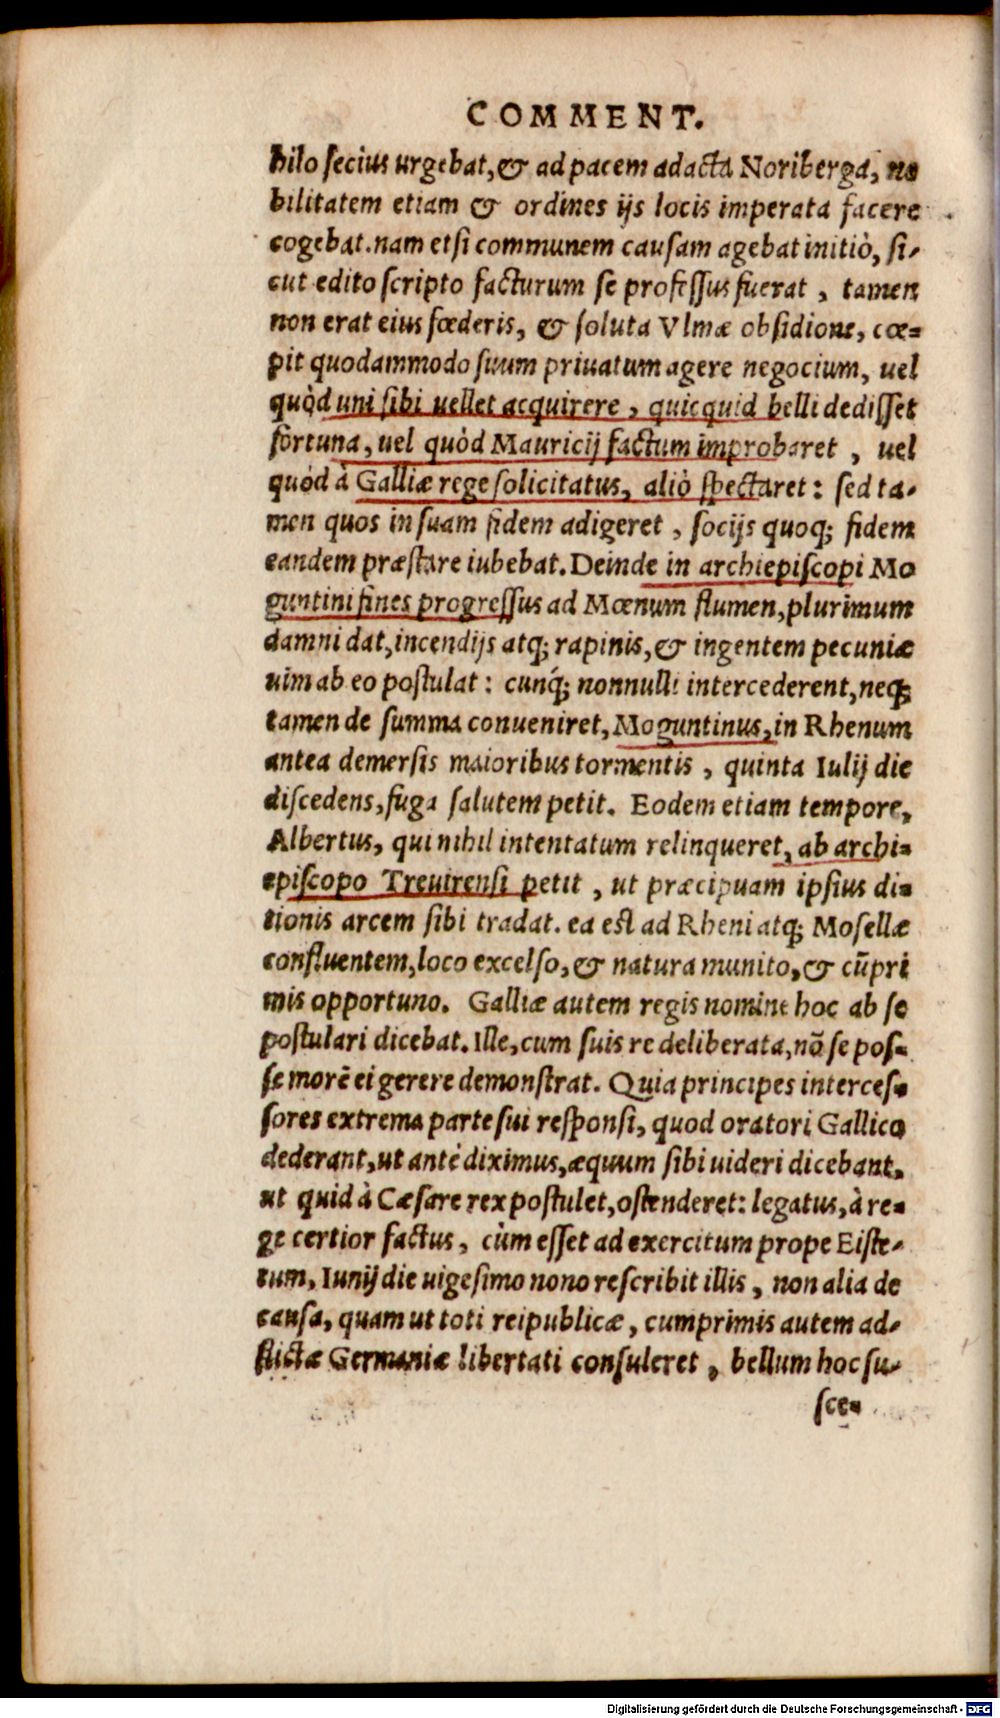 COMMENT.
hilo secius urgebat, & ad pacem adacta Noriberga, no
bilitatem etiam & ordines ijs locis imperata facere
cogebat. nam etsi communem causam agebat initiò, si-
cut edito scripto facturum se professus fuerat, tamen
non erat eius fœderis, & soluta Vlmæ obsidione, cœ-
pit quodammodo suum priuatum agere negocium, uel
quòd uni sibi uellet acquirere, quicquid belli dedisset
fortuna, uel quòd Mauricij factum improbaret, uel
quòd à Galliæ rege solicitatus, aliò spectaret: sed ta-
men quos in suam fidem adigeret, socijs quoq; fidem
eandem præstare iubebat. Deinde in archiepiscopi Mo
guntini fines progressus ad Mœnum flumen, plurimum
damni dat, incendijs atq; rapinis, & ingentem pecuniæ
uim ab eo postulat: cunq́; nonnulli intercederent, neq;
tamen de summa conueniret, Moguntinus, in Rhenum
antea demersis maioribus tormentis, quinta Iulij die
discedens, fuga salutem petit. Eodem etiam tempore,
Albertus, qui nihil intentatum relinqueret, ab archi-
episcopo Treuirensi petit, ut præcipuam ipsius di-
tionis arcem sibi tradat. ea est ad Rheni atq; Mosellæ
confluentem, loco excelso, & natura munito, & cũpri
mis opportuno. Galliæ autem regis nomine hoc ab se
postulari dicebat. Ille, cum suis re deliberata, nõ se pos-
se morẽ ei gerere demonstrat. Quia principes interces-
sores extrema parte sui responsi, quod oratori Gallico
dederant, ut antè diximus, æquum sibi uideri dicebant,
ut quid à Cæsare rex postulet, ostenderet: legatus, à re-
ge certior factus, cùm esset ad exercitum prope Eiste-
tum, Iunij die uigesimo nono rescribit illis, non alia de
causa, quam ut toti reipublicæ, cumprimis autem ad-
flictæ Germaniæ libertati consuleret, bellum hoc su-
sce-
Digitalisierung gefördert durch die Deutsche Forschungsgemeinschaft - DFG